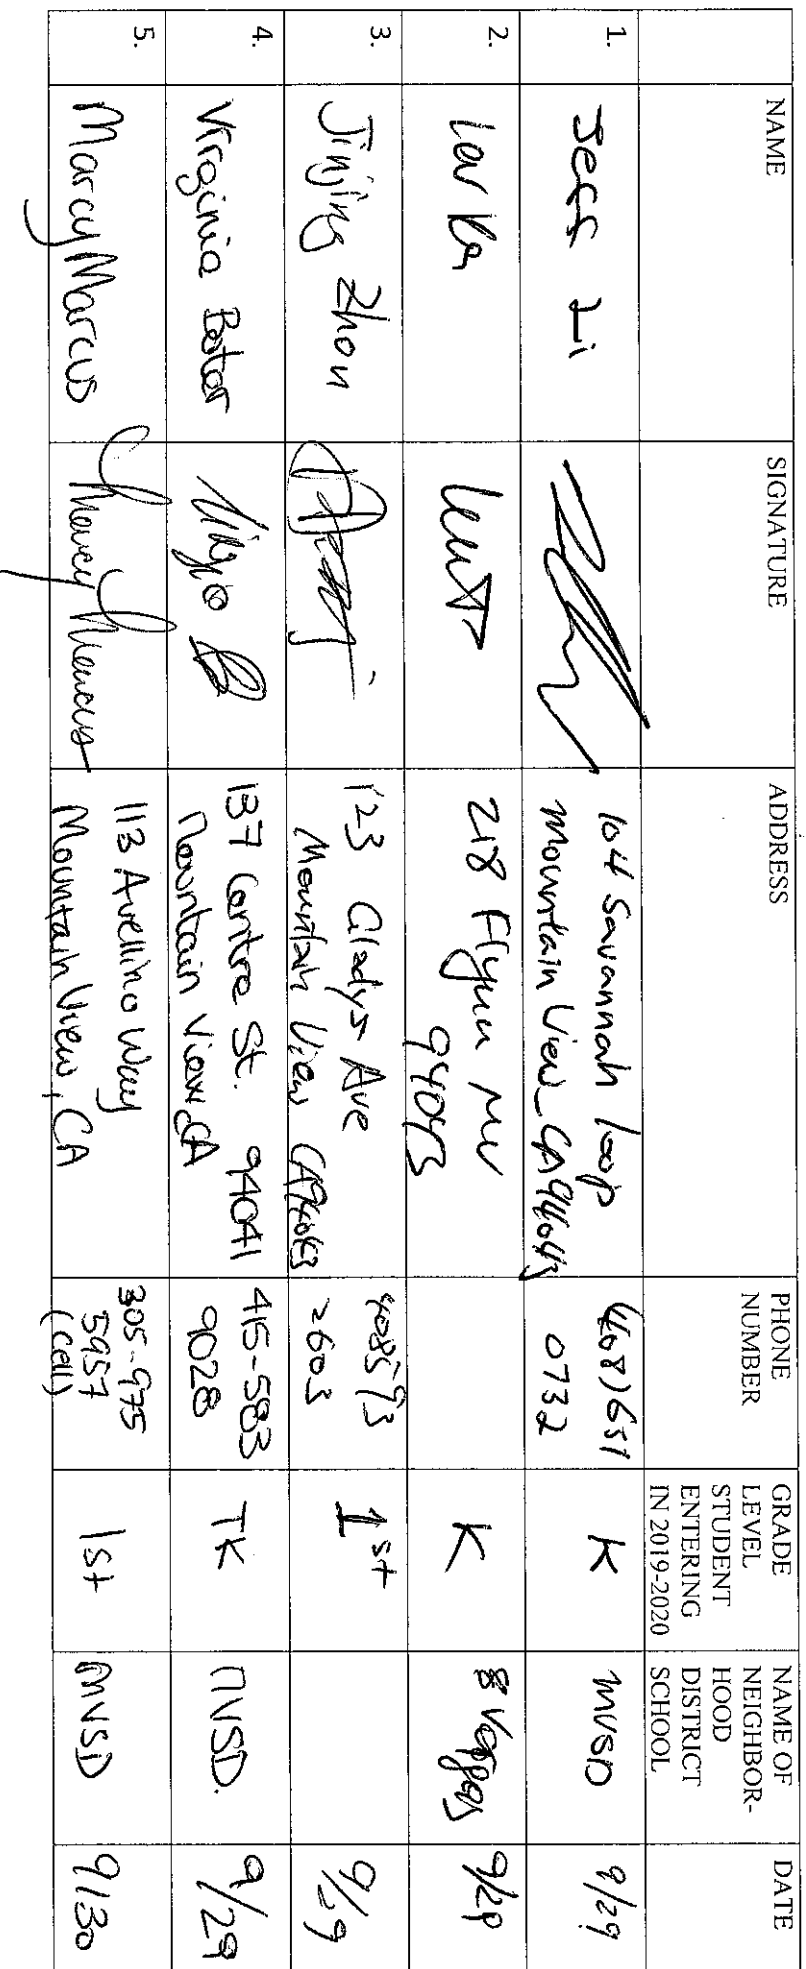 NAME
SIGNATURE
ADDRESS
PHONE
NUMBER
GRADE
LEVEL
STUDENT
ENTERING
IN 2019-2020
NAME OF
NEIGHBOR-
HOOD
DISTRICT
SCHOOL
DATE
1.
Jeff Li
104 Savannah loop
Mountain View CA 94043
(408) 651
0732
K
MVSD
9/29
2.
218 Flynn MV
94043
K
Vargas
9/29
3.
Jinjing Zhou
123 Gladys Ave
Mountain View CA 94043
408593
2603
1st
9/29
4.
Virginia
137 Centre St. 94041
Mountain View, CA
415-583
9028
TK
MVSD.
9/29
5.
Marcy Marcus
Marcy Marcus
113 Avellino Way
Mountain View, CA
305-975
5957
(cell)
1st
MVSD
9/30